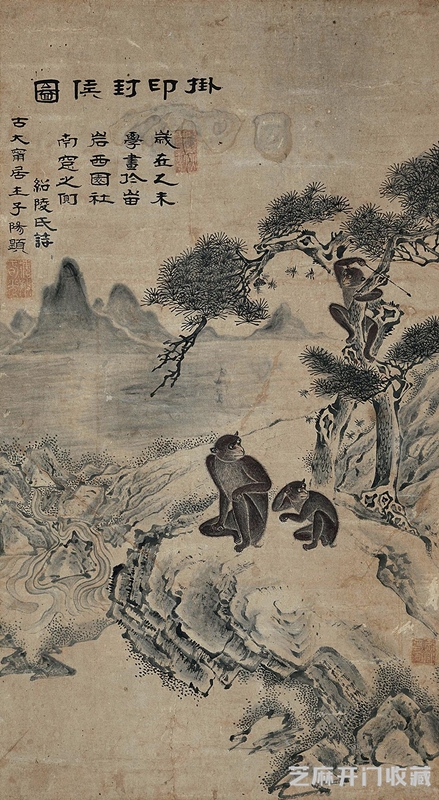 掛印封侯圖
歲在乙未
學畫於
岩西園社
南窓之側
紹陵氏詩
古大甯居王子陽題
芝麻开门收藏